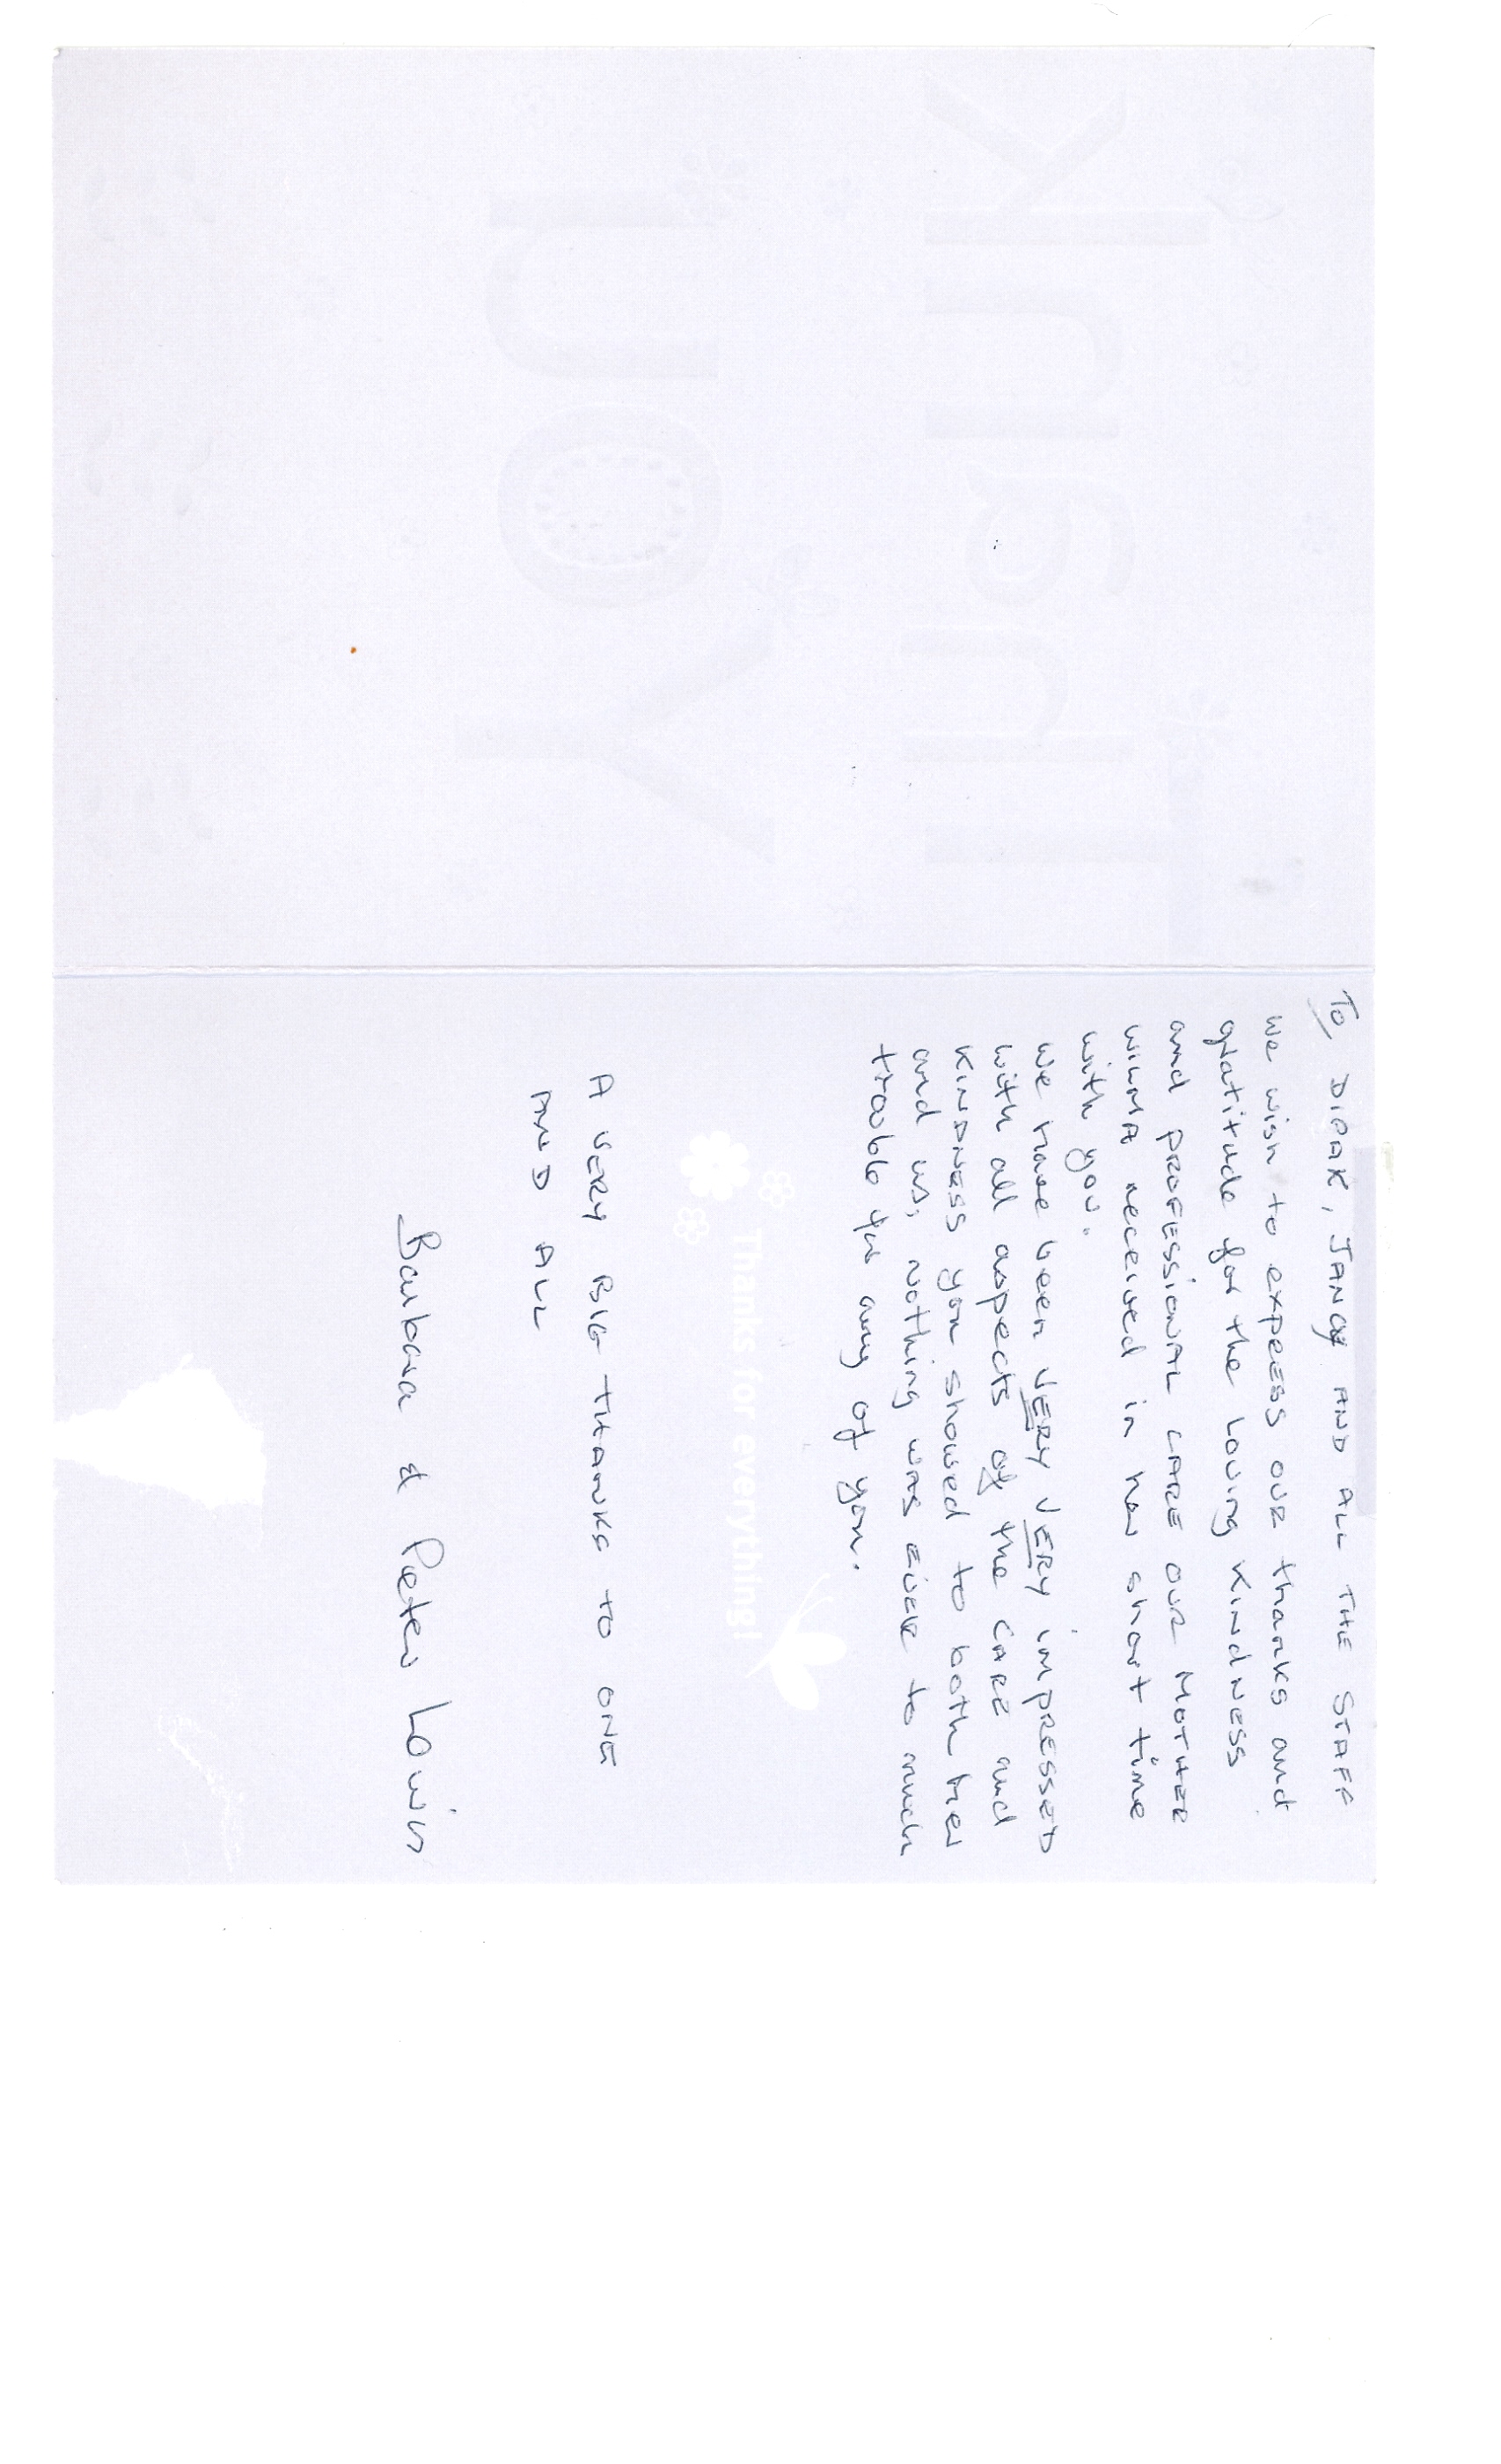 To DIPAK, JANCY AND ALL THE STAFF
we wish to express our thanks and
gratitude for the Loving KindNESS
and PROFESSIONAL CARE OUR MOTHER
WILMA received in her short time
with you.
We have been VERY VERY IMPRESSED
with all aspects of the CARE and
KINDNESS you showed to both her
and us, nothing was EVER to much
trouble for any of you.
Thanks for everything!
A VERY BIG THANKS TO ONE
AND ALL
Barbara & Peter
Thank
You